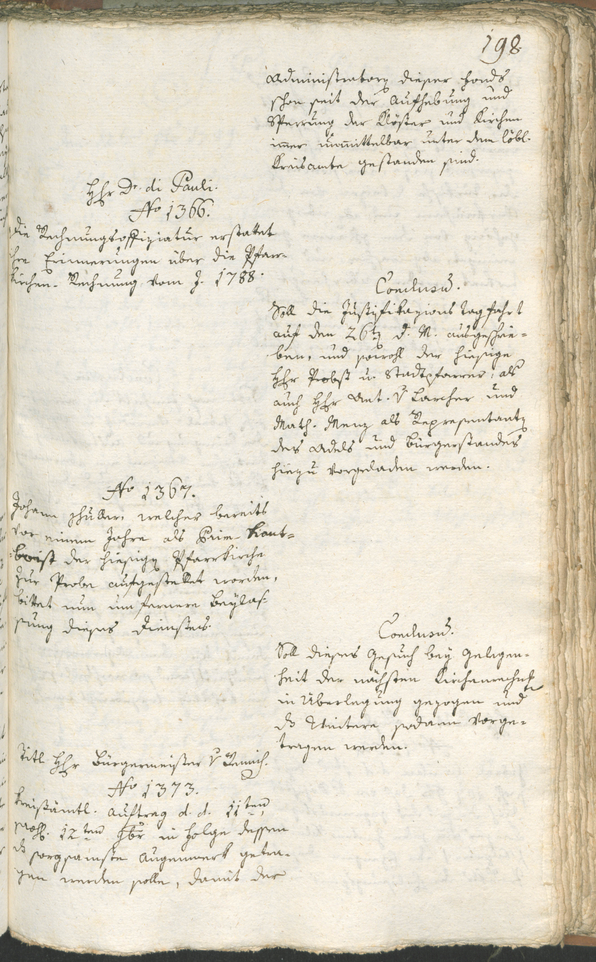 198
Administratorn dieser Fonds
schon seit der Aufhebung und
Sperrung der Klöster und Kirchen
immer unmittelbar unter dem löbl.
Kreisamte gestanden sind.
Hhr Dr. di Pauli.
No 1366.
Die Rechnungsoffiziatur erstattet
ihre Erinnerungen über die Pfarr-
kirchen-Rechnung vom J. 1788.
Conclusum.
Soll die Justifikazions Tagfahrt
auf den 26ten d. M. ausgeschrie-
ben, und sowohl der hiesige
Hhr Probst u. Stadtpfarrer, als
auch Hhr Ant. v Larcher und
Math. Menz als Representanten
des Adels und Bürgerstandes
hiezu vorgeladen werden.
No 1367.
Johann welcher bereits
vor einem Jahre als
der hiesigen Pfarrkirche
zur Probe aufgestellet worden,
bittet nun um fernere Beylas-
sung dieses Dienstes.
Conclusum.
Soll dieses Gesuch bey Gelegen-
heit der nächsten
in Überlegung gezogen und
das Weitere sodann vorge-
tragen werden.
Titl. Hhr Bürgermeister v
No 1373.
Kreisämtl. Auftrag d. d. 11ten
12ten in Folge dessen
das sorgsamste Augenmerk getra-
gen werden solle, damit der